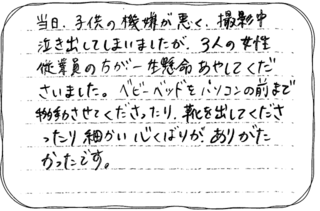 当日、子供の機嫌が悪く、撮影中
泣き出してしまいましたが、3人の女性
従業員の方が一生懸命あやしてくだ
さいました。ベビーベッドをパソコンの前まで
移動させてくださったり、靴を出してくださ
ったり細かい心くばりが、ありがた
かったです。